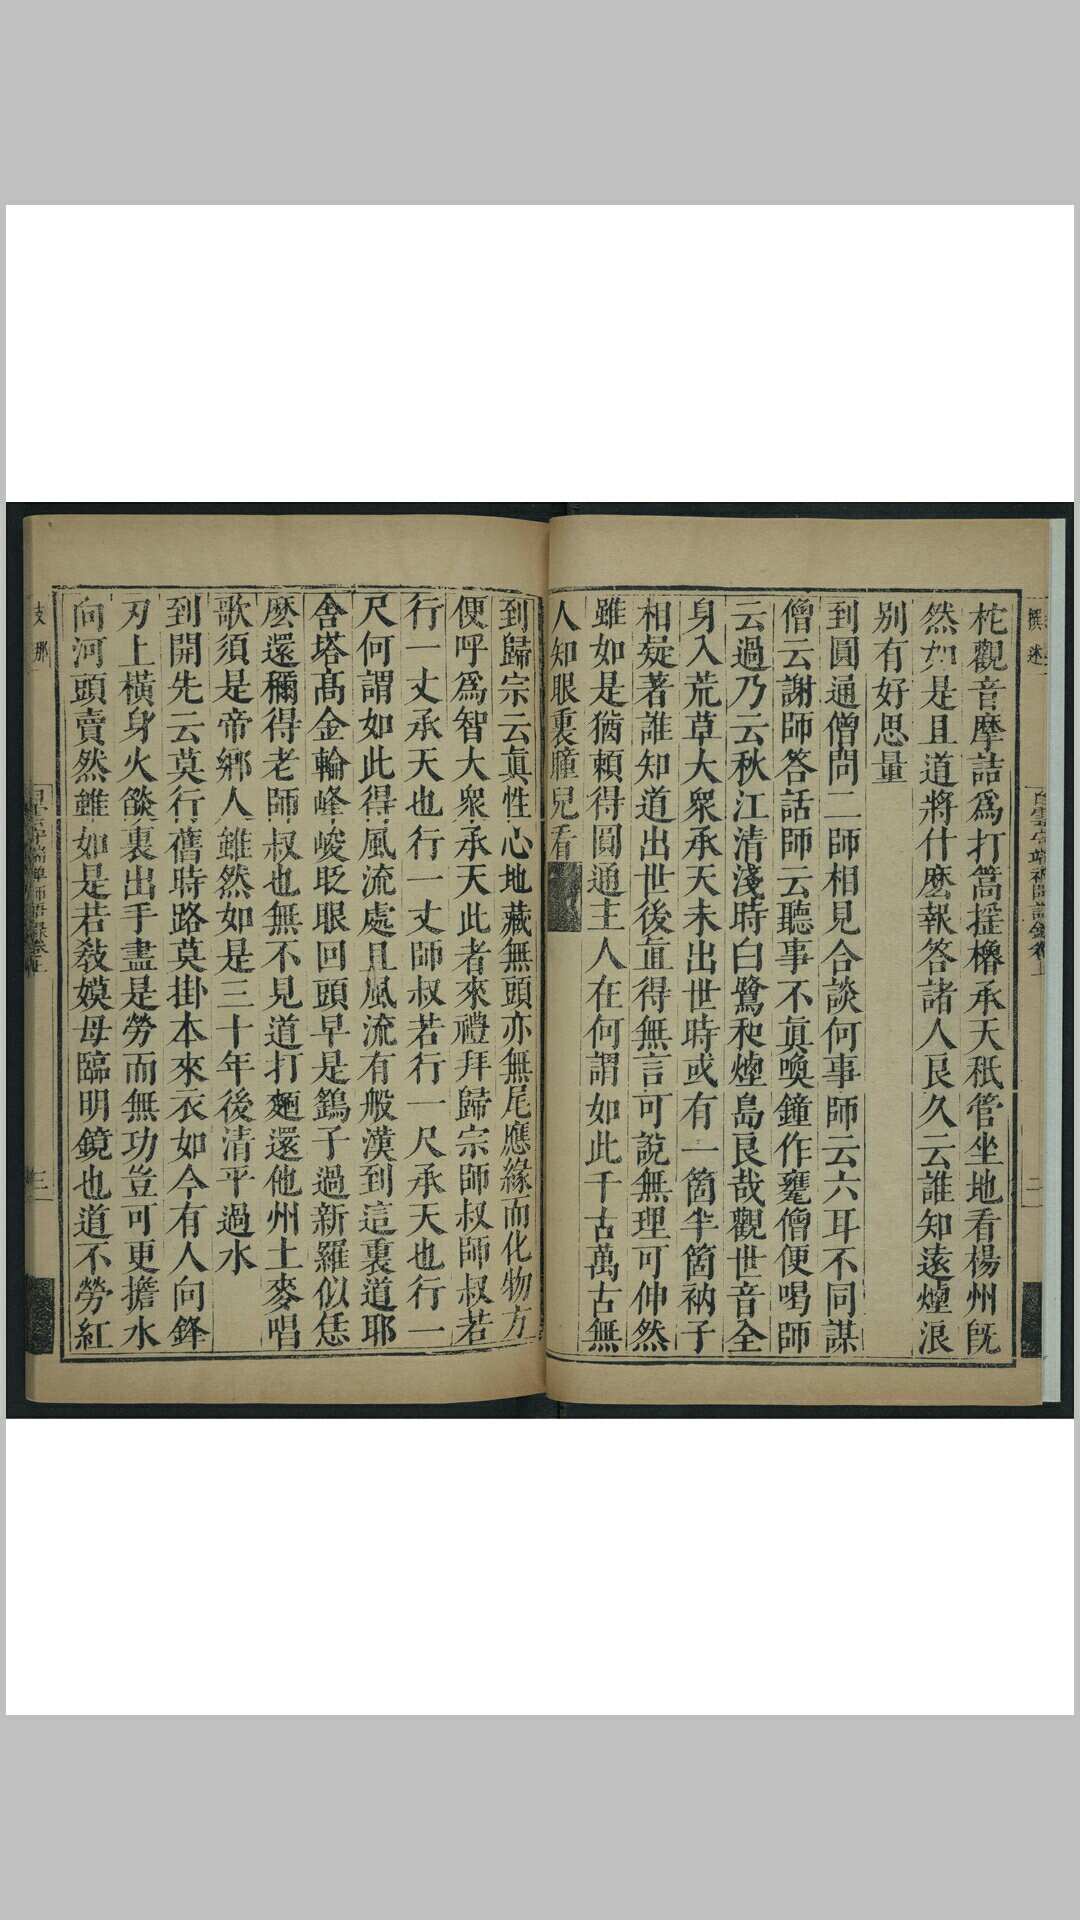 撰述
白雲守端禪師語錄卷上
二
柁觀音摩詰爲打篙搖櫓承天秖管坐地看楊州旣
然如是且道將什麽報答諸人良久云誰知遠煙浪
别有好思量
到圓通僧問二師相見合談何事師云六耳不同謀
僧云謝師答話師云聽事不眞喚鐘作甕僧便喝師
云過乃云秋江清淺時白鷺和煙島良哉觀世音全
身入荒草大衆承天未出世時或有一箇半箇衲子
相疑著誰知道出世後直得無言可說無理可伸然
雖如是猶賴得圓通主人在何謂如此千古萬古無
人知眼裏瞳兒看
到歸宗云眞性心地藏無頭亦無尾應緣而化物方
便呼爲智大衆承天此者來禮拜歸宗師叔師叔若
行一丈承天也行一丈師叔若行一尺承天也行一
尺何謂如此得風流處且風流有般漢到這裏道耶
舍塔髙金輪峰峻眨眼回頭早是鷂子過新羅似恁
麽還稱得老師叔也無不見道打麵還他州土麥唱
歌須是帝鄉人雖然如是三十年後清平過水
到開先云莫行舊時路莫掛本來衣如今有人向鋒
刃上橫身火燄裏出手盡是勞而無功豈可更擔水
向河頭賣然雖如是若敎嫫母臨明鏡也道不勞紅
支那
白雲守端禪師語錄卷上
三